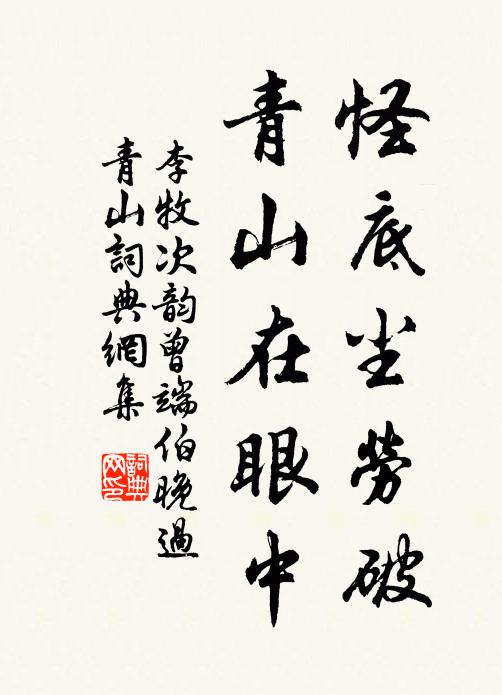 怪底尘勞破
青山在眼中
李牧次韵曾端伯晚過
青山詞典網集
詞典网印